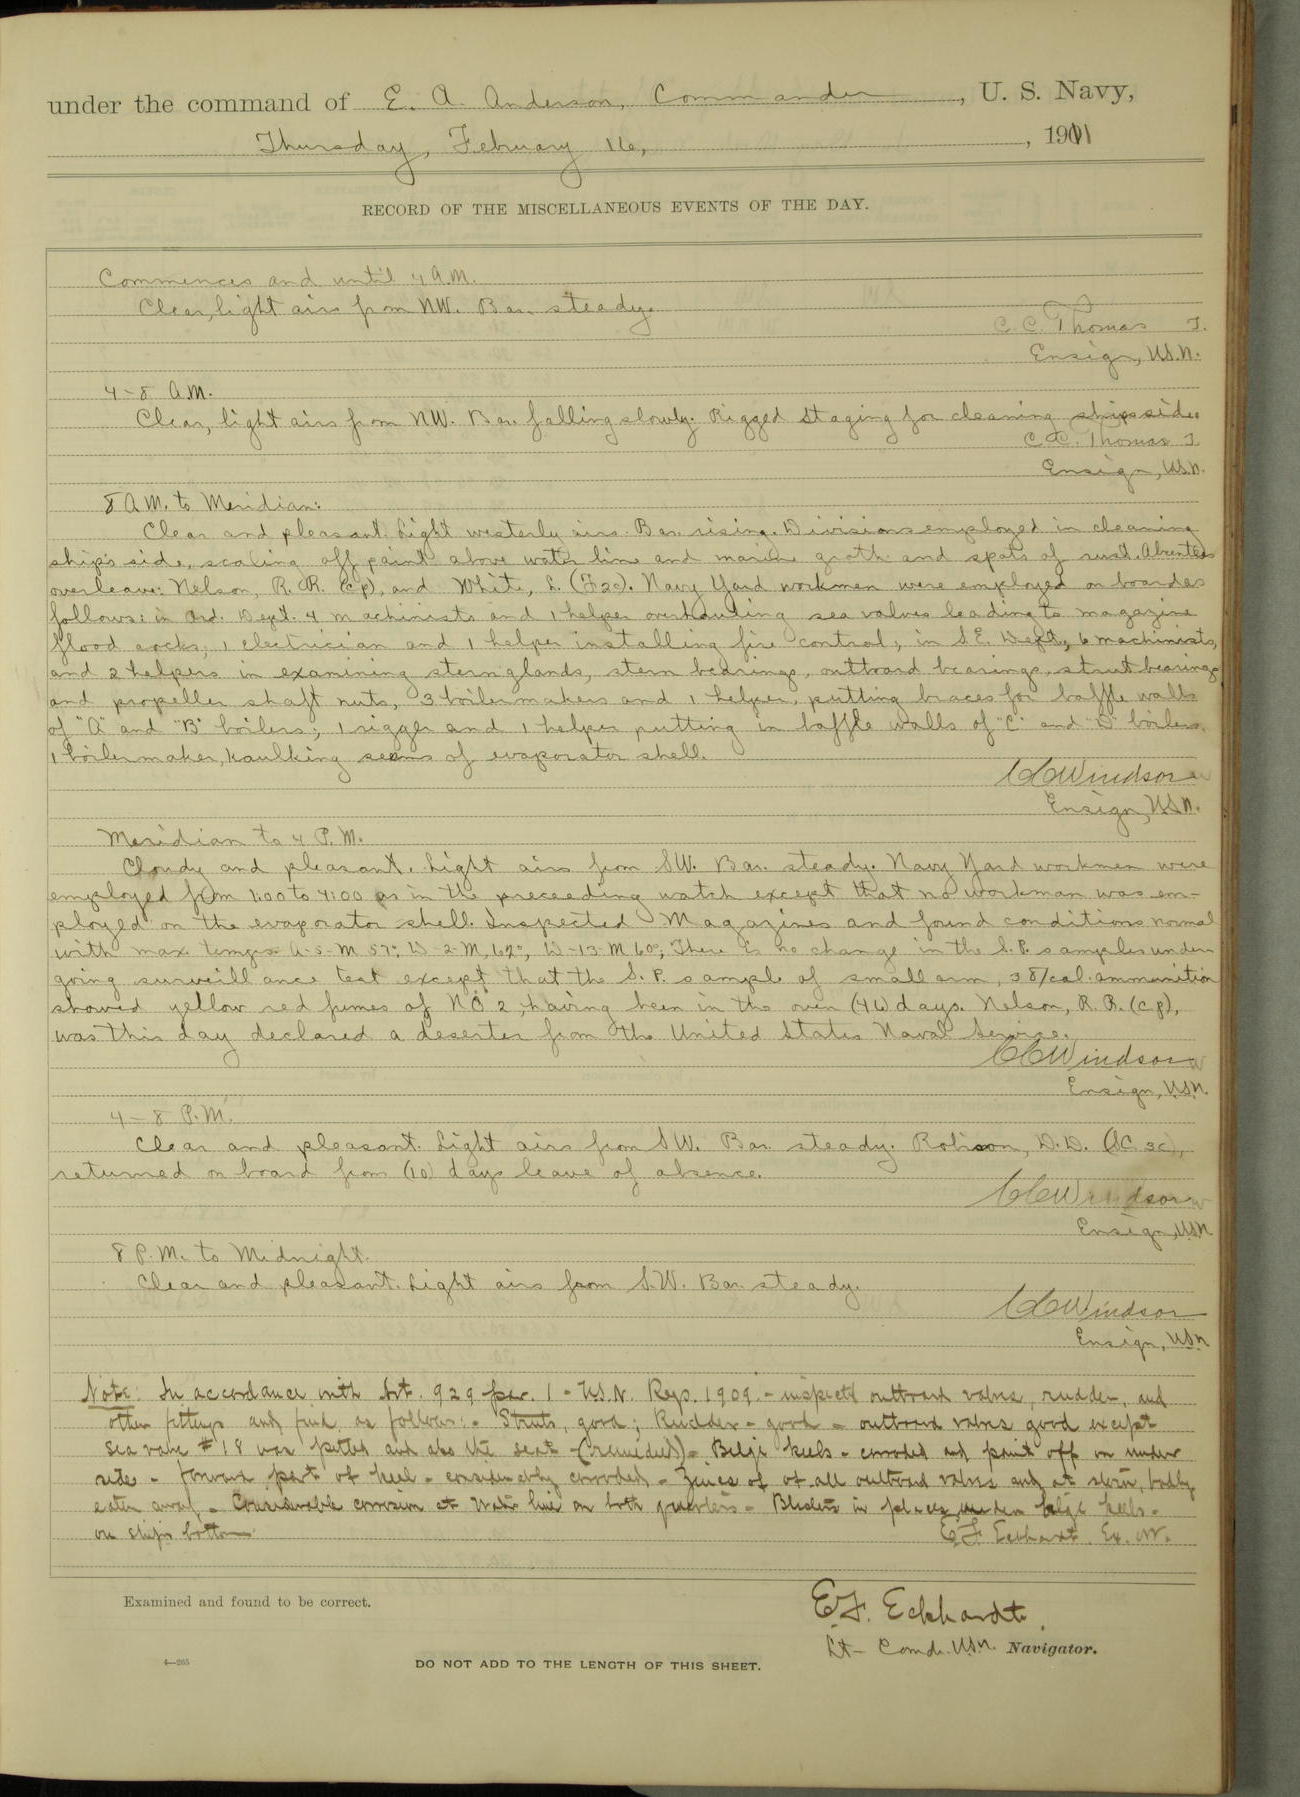 under the command of E. A. Anderson, Commander, U. S. Navy,
Thursday, February 16, 1911
RECORD OF THE MISCELLANEOUS EVENTS OF THE DAY.
Commences and until 4 A.M.
Clear, light airs from NW. Bar. steady.
C. C. Thomas
Ensign, U.S.N.
4-8 A.M.
Clear, light airs from NW. Bar. falling slowly. Rigged staging for cleaning ships side.
C. C. Thomas
Ensign, U.S.N.
8 A.M. to Meridian:
Clear and pleasant. Light westerly airs. Bar. rising. Divisions employed in cleaning
ship's side, scaling off paint above water line and marine groth and spots of rust. Absentees
overleave: Nelson, R. R. (cp), and White, L. (F2c). Navy Yard workmen were employed on board as
follows: in Ord. Dept. 4 machinists and 1 helper overhauling sea valves leading to magazine
flood cocks, 1 electrician and 1 helper installing fire control; in S.E. Dept., 6 machinists,
and 2 helpers in examining stern glands, stern bearings, outboard bearings, strut bearings
and propeller shaft nuts, 3 boilermakers and 1 helper, putting braces for baffle walls
of "A" and "B" boilers; 1 rigger and 1 helper putting in baffle walls of "C" and "D" boilers.
1 boilermaker, kaulking seams of evaporator shell.
Windsor
Ensign, U.S.N.
Meridian to 4 P.M.
Cloudy and pleasant. Light airs from SW. Bar. steady. Navy Yard workmen were
employed from 1:00 to 4:00 as in the preceeding watch except that no workman was em-
ployed on the evaporator shell. Inspected Magazines and found conditions normal
with max. temps. A-5-M 57°, D-2-M, 62°, D-13-M 60°, There is no change in the S.P. samples under
going surveillance test except that the S. P. sample of small arm, 38/cal. ammunition
showed yellow red fumes of NO2, having been in the oven (46) days. Nelson, R. R. (cp),
was this day declared a deserter from the United States Naval Service.
Windsor
Ensign, U.S.N.
4-8 P.M.
Clear and pleasant. Light airs from SW. Bar. steady. Robison, D. D. (SC 3c),
returned on board from (10) days leave of absence.
Windsor
Ensign, U.S.N.
8 P.M. to Midnight.
Clear and pleasant. Light airs from S.W. Bar. steady.
Windsor
Ensign, U.S.N.
Note: In accordance with Art. 929 par. 1 - U.S.N. Regs. 1909. - inspected outboard valves, rudder, and
other fittings and find as follows: - Struts, good; Rudder - good - outboard valves good except
sea valve #18 was pitted and also the seat - (remedied) - Bilge keels - corroded and paint off on under
side - forward part of keel - considerably corroded. - Zincs of at all outboard valves and at stern, badly
eaten away. - Considerable corrosion at water line on both quarters - Blisters in places under bilge keels -
on ships bottom
E. F. Eckhardt. Ex. Of.
Examined and found to be correct.
E. F. Eckhardt.
Lt - Comdr. U.S.N. Navigator.
4—265
DO NOT ADD TO THE LENGTH OF THIS SHEET.